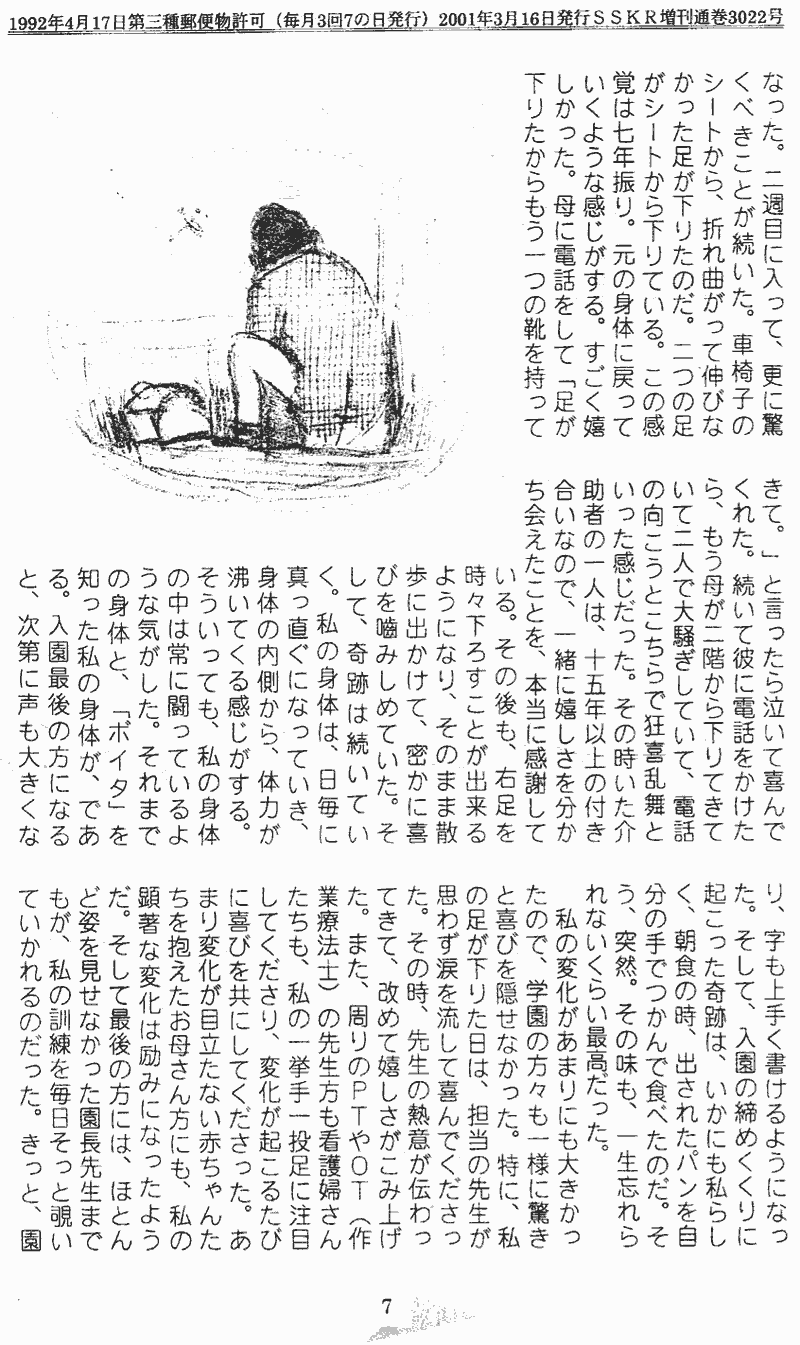 1992年4月17日第三種郵便物許可（毎月3回7の日発行）2001年3月16日発行ＳＳＫＲ増刊通巻3022号
なった。二週目に入って、更に驚
くべきことが続いた。車椅子の
シートから、折れ曲がって伸びな
かった足が下りたのだ。二つの足
がシートから下りている。この感
覚は七年振り。元の身体に戻って
いくような感じがする。すごく嬉
しかった。母に電話をして「足が
下りたからもう一つの靴を持って
きて。」と言ったら泣いて喜んで
くれた。続いて彼に電話をかけた
ら、もう母が二階から下りてきて
いて二人で大騒ぎしていて、電話
の向こうとこちらで狂喜乱舞と
いった感じだった。その時いた介
助者の一人は、十五年以上の付き
合いなので、一緒に嬉しさを分か
ち会えたことを、本当に感謝して
いる。その後も、右足を
時々下ろすことが出来る
ようになり、そのまま散
歩に出かけて、密かに喜
びを嚙みしめていた。そ
して、奇跡は続いてい
く。私の身体は、日毎に
真っ直ぐになっていき、
身体の内側から、体力が
沸いてくる感じがする。
そういっても、私の身体
の中は常に闘っているよ
うな気がした。それまで
の身体と、「ボイタ」を
知った私の身体が、であ
る。入園最後の方になる
と、次第に声も大きくな
り、字も上手く書けるようになっ
た。そして、入園の締めくくりに
起こった奇跡は、いかにも私らし
く、朝食の時、出されたパンを自
分の手でつかんで食べたのだ。そ
う、突然。その味も、一生忘れら
れないくらい最高だった。
私の変化があまりにも大きかっ
たので、学園の方々も一様に驚き
と喜びを隠せなかった。特に、私
の足が下りた日は、担当の先生が
思わず涙を流して喜んでくださっ
た。その時、先生の熱意が伝わっ
てきて、改めて嬉しさがこみ上げ
た。また、周りのＰＴやＯＴ（作
業療法士）の先生方も看護婦さん
たちも、私の一挙手一投足に注目
してくださり、変化が起こるたび
に喜びを共にしてくださった。あ
まり変化が目立たない赤ちゃんた
ちを抱えたお母さん方にも、私の
顕著な変化は励みになったよう
だ。そして最後の方には、ほとん
ど姿を見せなかった園長先生まで
もが、私の訓練を毎日そっと覗い
ていかれるのだった。きっと、園
7